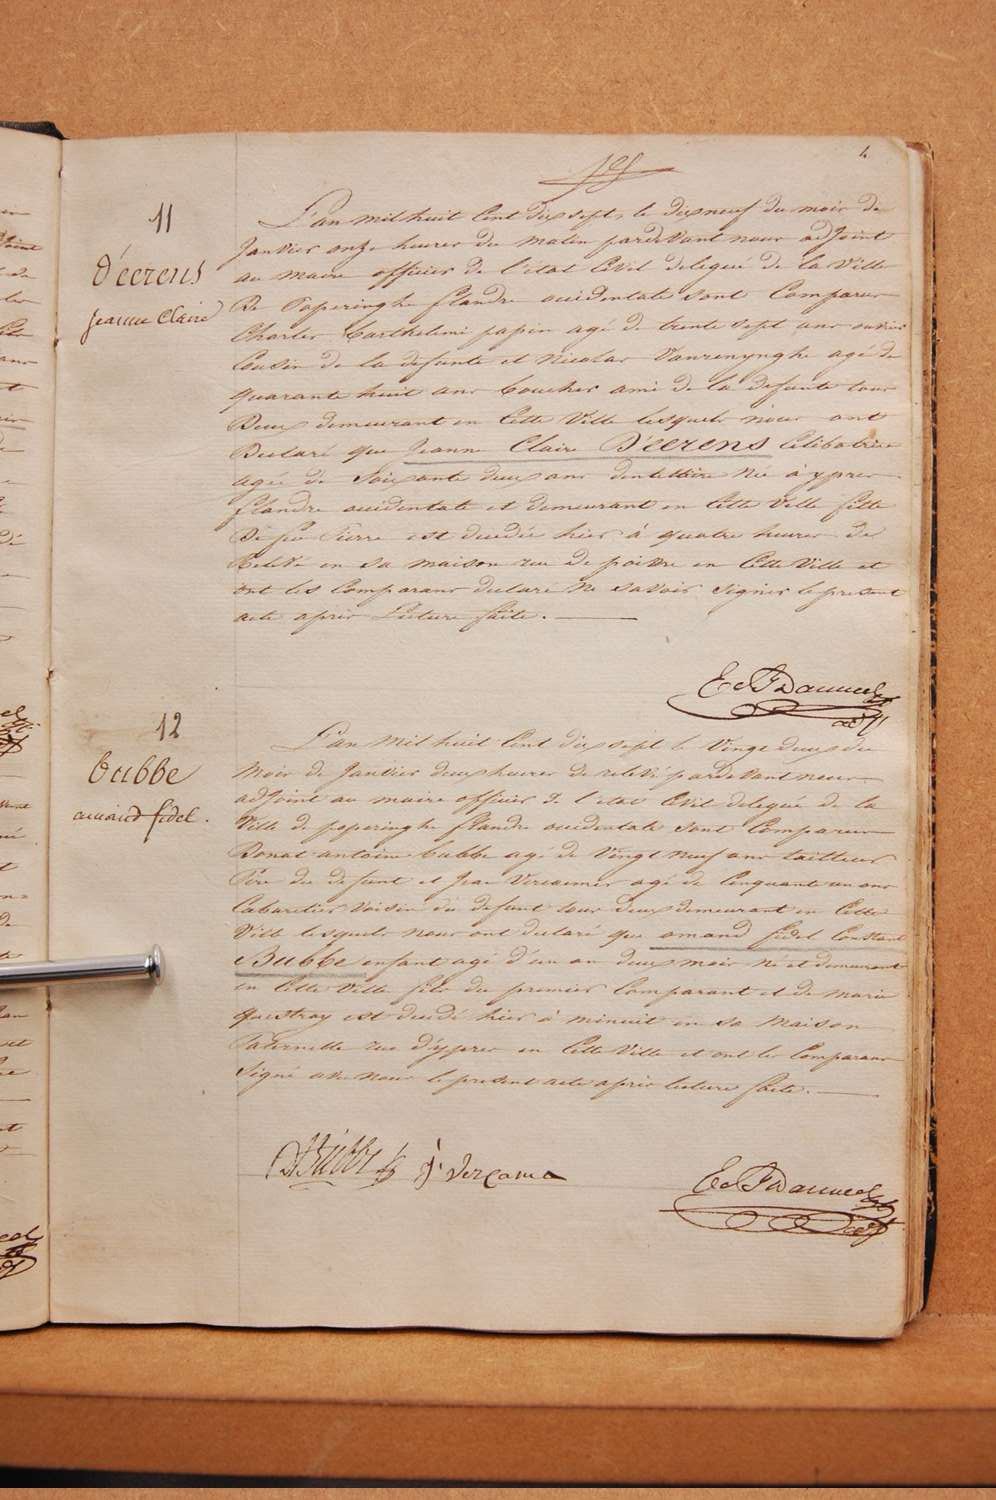 4
11
D'éerens
Jeanne Claire
L'an mil huit Cent dix sept, le dix neuf du mois de
Janvier onze heures du matin pardevant nous adjoint
au maire officier de l'état Civil delegué de la Ville
De Poperinghe flandre occidentale sont Comparus
Charles Barthelemi papin agé de trente sept ans ouvrier
Cousin de la defunte et Nicolas Vanrenynghe agé de
quarante huit ans boucher ami de la defunte tous
Deux demeurant en Cette Ville lesquels nous ont
Declaré que Jeanne Claire D'éerens Celibatrice
agée de Soixante deux ans dentelliere Née à ypres
flandre occidentale et demeurant en Cette Ville fille
De feu Pierre est decedée hier à quatre heures de
Relevé en sa maison rue de poivre en Cette Ville et
ont les Comparans declaré Ne savoir signer le present
acte après Lecture faite.
12
Bubbe
amand fidel.
L'an Mil huit Cent dix sept le Vingt deux du
Mois de Janvier deux heures de relevé pardevant nous
adjoint au maire officier de l'etat Civil delegué de la
Ville de poperinghe flandre occidentale sont Comparus
Donat antoine bubbe agé de Vingt neuf ans tailleur
Père du defunt et Jean Vercamer agé de Cinquante un ans
Cabaretier Voisin du defunt tous deux demeurant en Cette
Ville lesquels nous ont declaré que amand fidel Constant
Bubbe enfant agé d'un an deux mois Né et demeurant
en Cette Ville fils du premier Comparant et de marie
questroy est decedé hier à minuit en sa Maison
Paternelle rue d'ypres en Cette Ville et ont les Comparans
Signé avec nous le present acte après lecture faite.
DABubbe J. Vercame